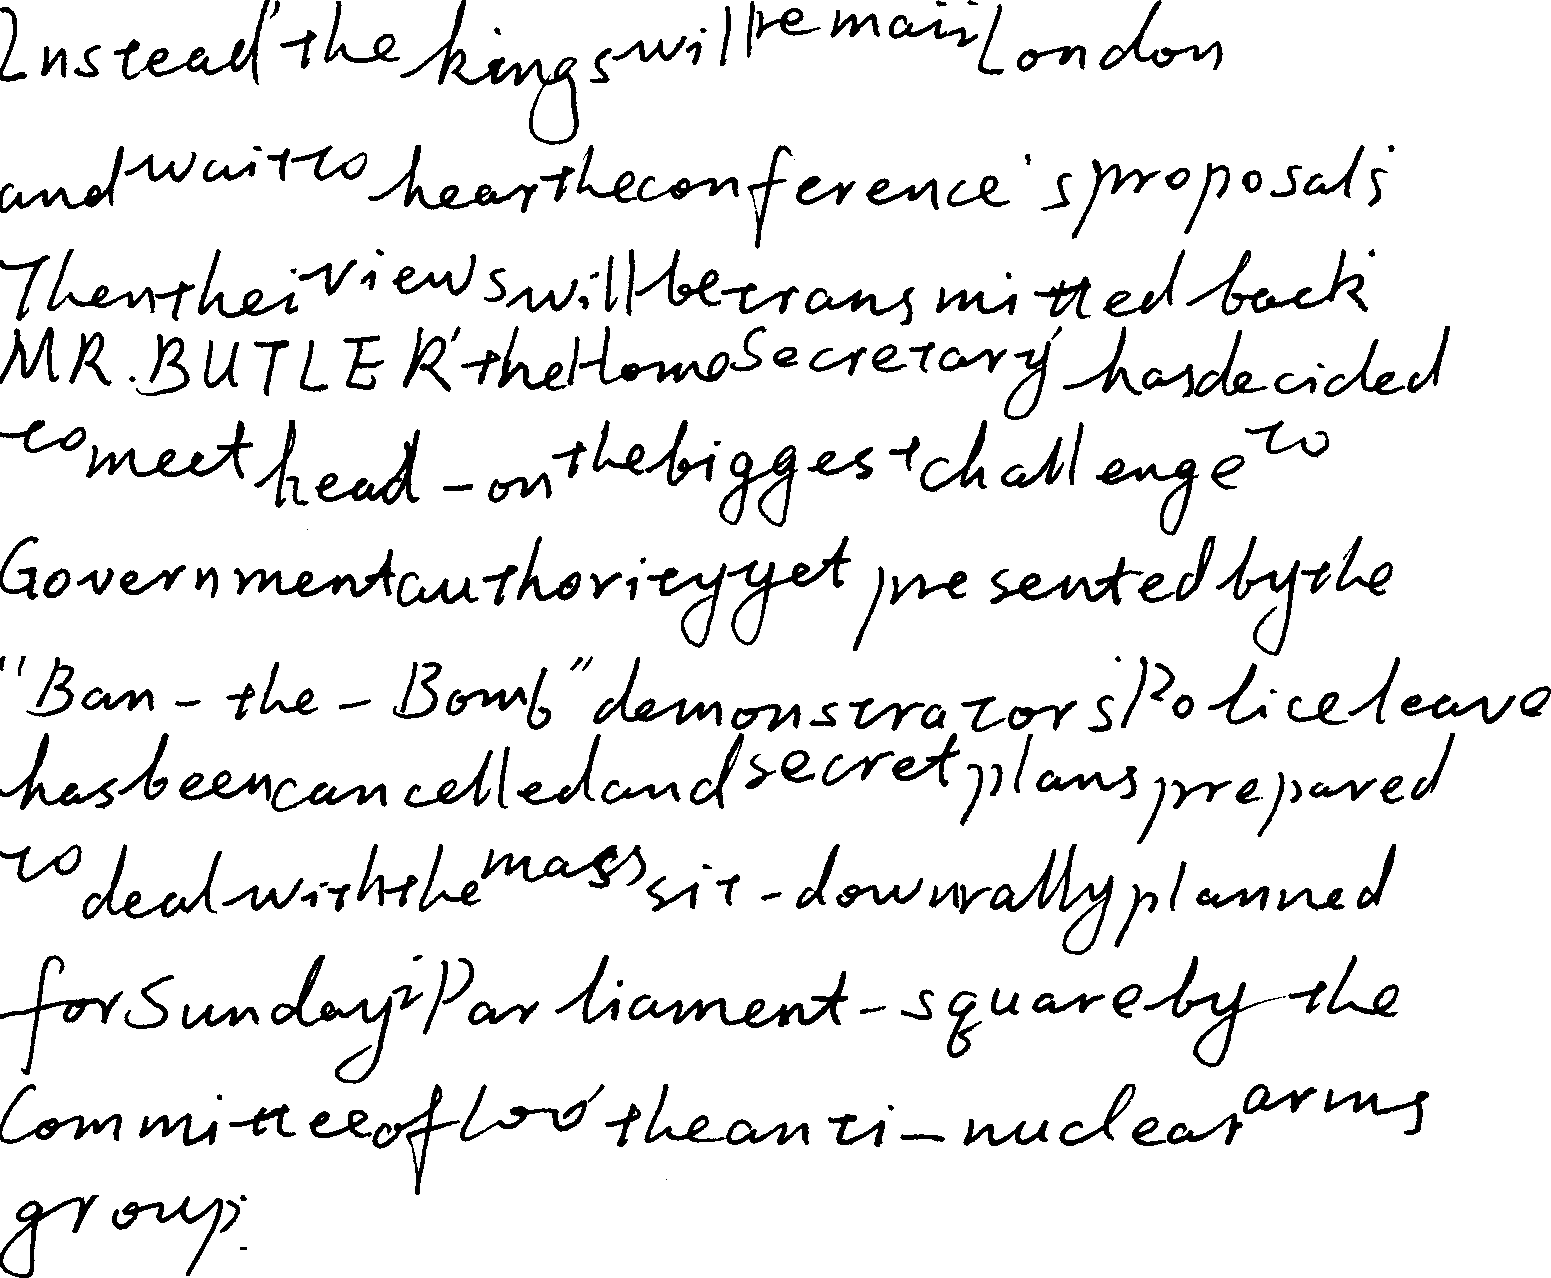 Instead, the kings will remain London
and wait to hear the conference's proposals.
Then their views will be transmitted back.
MR. BUTLER, the Home Secretary, has decided
to meet head-on the biggest challenge to
Government authority yet presented by the
"Ban-the-Bomb" demonstrators. Police leave
has been cancelled and secret plans prepared
to deal with the mass sit-down rally planned
for Sunday in Parliament-square by the
Committee of 100, the anti-nuclear arms
group.